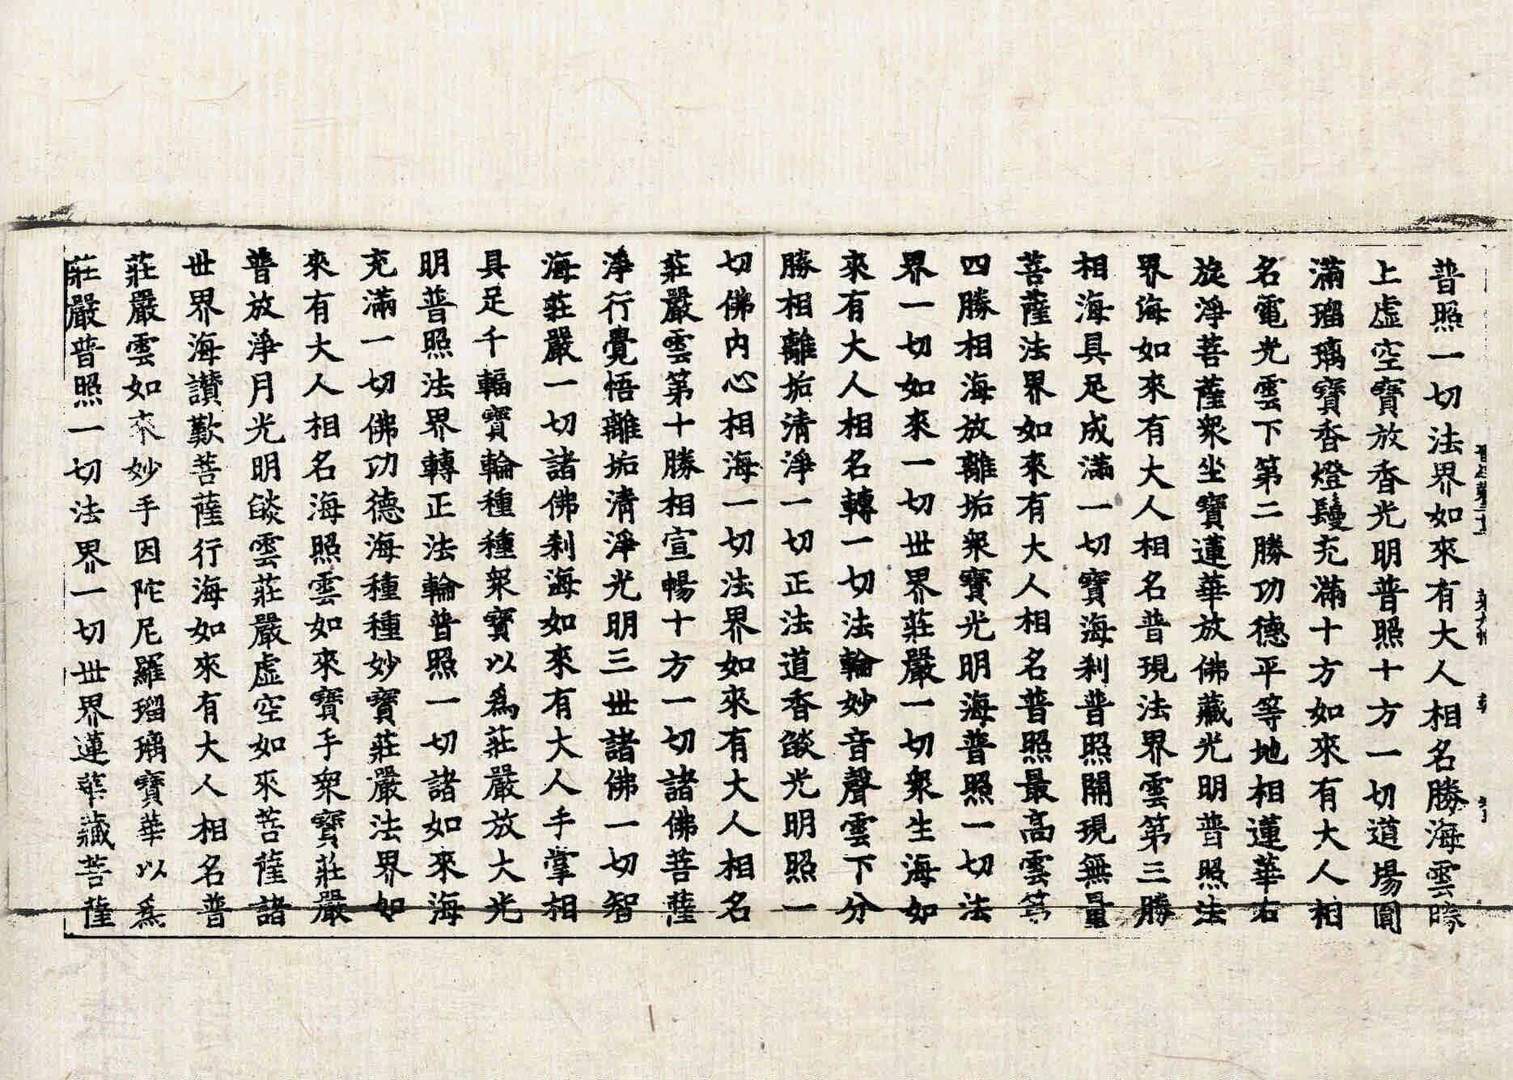 普照一切法界如來有大人相名勝海雲
上虛空寶放香光明普照十方一切道場圓
滿瑠璃寶香燈鬘充滿十方如來有大人相
名電光雲下第二勝功德平等地相蓮華右
旋淨菩薩眾坐寶蓮華放佛藏光明普照法
界海如來有大人相名普現法界雲第三勝
相海具足成滿一切寶海刹普照開現無量
菩薩法界如來有大人相名普照最高雲第
四勝相海放離垢眾寶光明海普照一切法
界一切如來一切世界莊嚴一切眾生海如
來有大人相名轉一切法輪妙音聲雲下分
勝相離垢清淨一切正法道香燄光明照一
切佛內心相海一切法界如來有大人相名
莊嚴雲第十勝相宣暢十方一切諸佛菩薩
淨行覺悟離垢清淨光明三世諸佛一切智
海莊嚴一切諸佛刹海如來有大人手掌相
具足千輻寶輪種種眾寶以為莊嚴放大光
明普照法界轉正法輪普照一切諸如來海
充滿一切佛功德海種種妙寶莊嚴法界如
來有大人相名海照雲如來寶手眾寶莊嚴
普放淨月光明燄雲莊嚴虛空如來菩薩諸
世界海讚歎菩薩行海如來有大人相名普
莊嚴雲如來妙手因陀尼羅瑠璃寶華以為
莊嚴普照一切法界一切世界蓮華藏菩薩